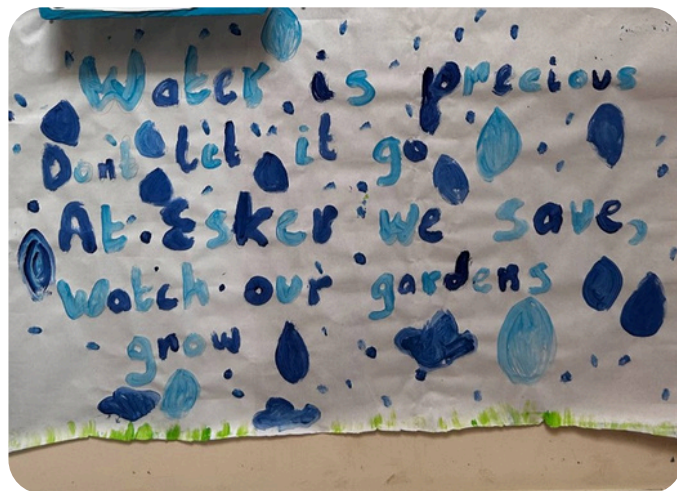 Water is precious
Dont let it go
At Esker we save,
watch our gardens
grow